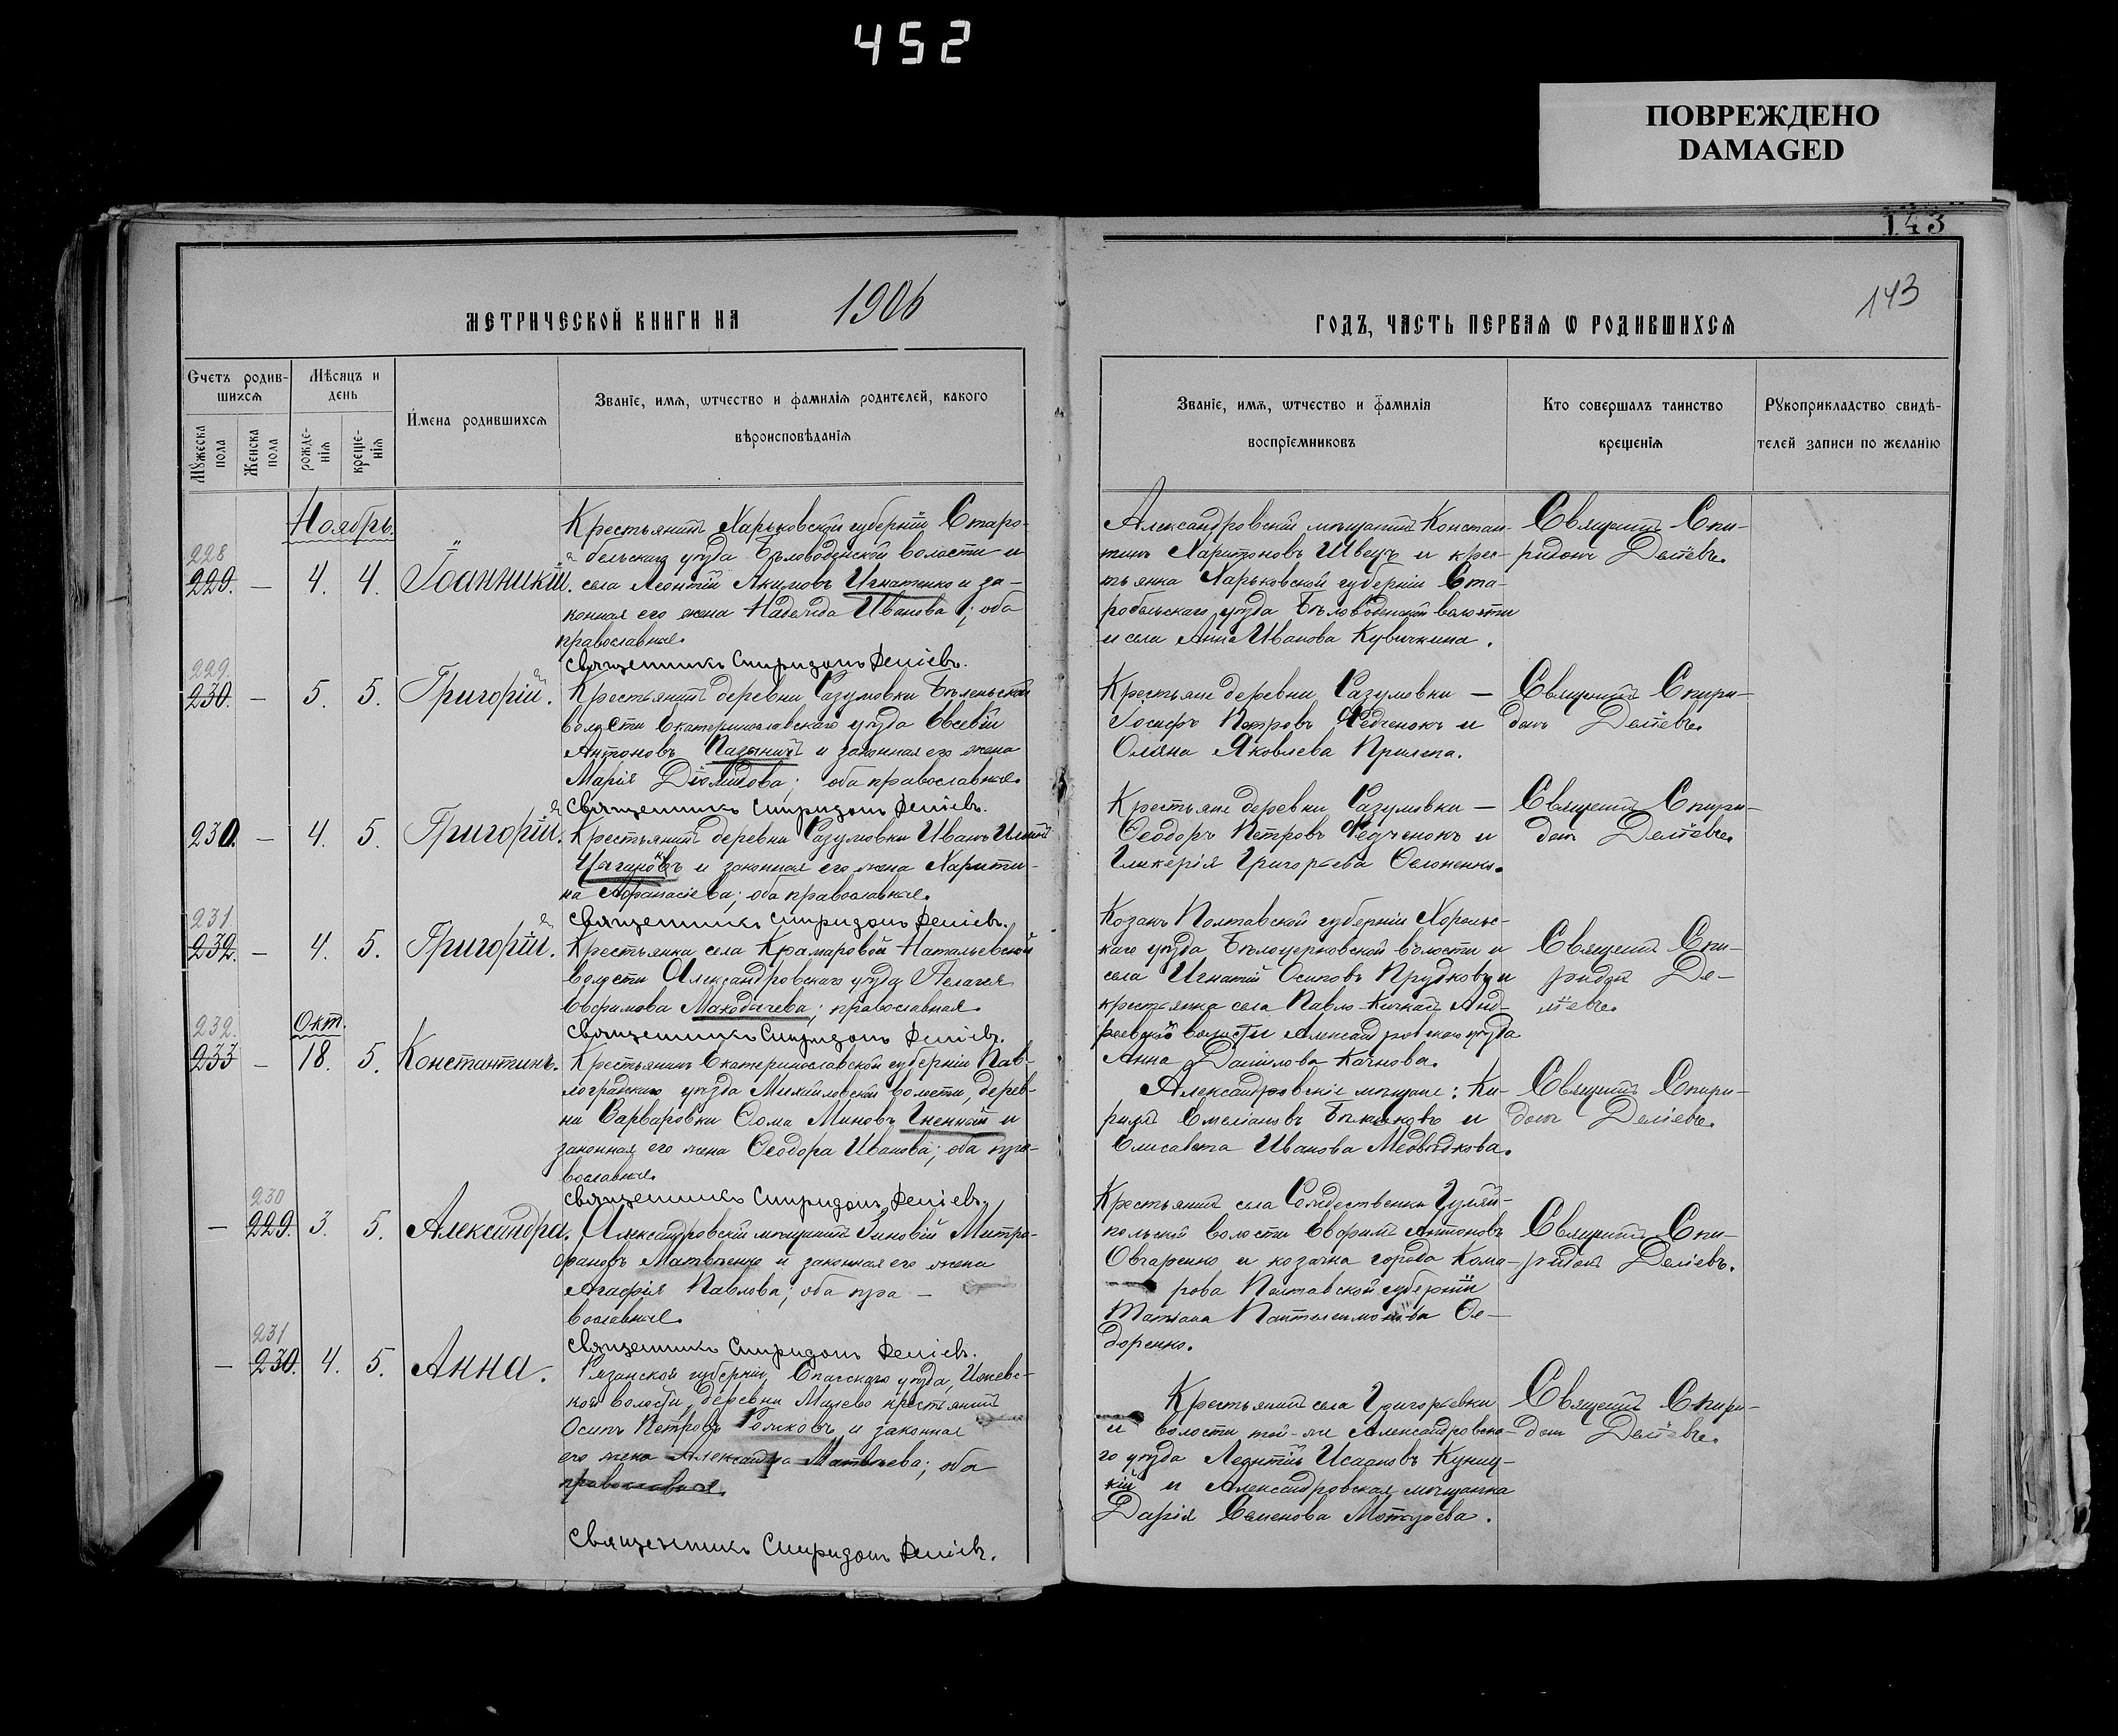 452
ПОВРЕЖДЕНО
DAMAGED
143
143
МЕТРИЧЕСКОЙ КНИГИ НА 1906
ГОДЪ, ЧАСТЬ ПЕРВАЯ Ѡ РОДИВШИХСЯ
Счетъ родив-
шихся
Мѣсяцъ и
день
Имена родившихся
Званіе, имя, ѡтчество и фамилія родителей, какого
вѣроисповѣданія
Мужеска
пола
Женска
пола
рожде-
нія
креще-
нія
Званіе, имя, ѡтчество и фамилія
воспріемниковъ
Кто совершалъ таинство
крещенія
Рукоприкладство свидѣ-
телей записи по желанію
Ноябрь.
228
229. — 4. 4. Іоанникій.
Крестьянинъ Харьковской губерніи Старо-
бельскаго уѣзда Бѣловодской волости и
села Леонтій Акимовъ Игнатенко и за-
конная его жена Надежда Иванова; оба
православные.
Священникъ Спиридонъ Деліевъ.
Александровскій мѣщанинъ Констан-
тинъ Харитоновъ Швецъ и крес-
тьянка Харьковской губерніи Ста-
робельскаго уѣзда Бѣловодской волости
и села Анна Иванова Кувичкина.
Священникъ Спи-
ридонъ Деліевъ.
229.
230. — 5. 5. Григорій.
Крестьянинъ деревни Разумовки Бѣленьской
волости Екатеринославскаго уѣзда Евсевій
Антоновъ и законная его жена
Марія Діомидова; оба православные.
Священникъ Спиридонъ Деліевъ.
Крестьяне деревни Разумовки —
Іосифъ Петровъ Федченокъ и
Оляна Яковлева Прилепа.
Священникъ Спири-
донъ Деліевъ.
230. — 4. 5. Григорій.
Крестьянинъ деревни Разумовки Иванъ
Цыгановъ и законная его жена Харити-
на Афанасіева; оба православные.
Священникъ Спиридонъ Деліевъ.
Крестьяне деревни Разумовки —
Ѳеодоръ Петровъ Федченокъ и
Гликерія Григорьева
Священникъ Спири-
донъ Деліевъ.
231.
232. — 4. 5. Григорій.
Крестьянка села Крамаровой Натальевской
волости Александровскаго уѣзда Пелагея
Евфимова Макодачева; православная.
Священникъ Спиридонъ Деліевъ.
Козакъ Полтавской губерніи Хорольс-
каго уѣзда Бѣлоцерковской волости и
села Игнатій Осиповъ Прудковъ и
крестьянка села Павло-Кичкасъ Анд-
реевской волости Александровскаго уѣзда
Анна Данилова Качнова.
Священникъ Спи-
ридонъ Де-
ліевъ.
Окт.
232.
233 — 18. 5. Константинъ.
Крестьянинъ Екатеринославской губерніи Пав-
лоградскаго уѣзда Михайловской волости, дерев-
ни Варваровки Ѳома Миновъ Гненный и
законная его жена Ѳеодора Иванова; оба пра-
вославные.
Священникъ Спиридонъ Деліевъ.
Александровскіе мѣщане: Ки-
риллъ Емеліановъ и
Елисавета Иванова Медвѣдкова.
Священникъ Спири-
донъ Деліевъ.
230
— 229. 3. 5. Александра.
Александровскій мѣщанинъ Зиновій Митро-
фановъ Матвѣенко и законная его жена
Агафія Павлова; оба пра-
вославные.
Священникъ Спиридонъ Деліевъ.
Крестьянинъ села Рождественки Гуляй-
польской волости Евфимій Антоновъ
Овчаренко и козачка города Кома-
рова Полтавской губерніи
Татіана Пантелеимонова Ѳе-
доренко.
Священникъ Спи-
ридонъ Деліевъ.
231
— 230. 4. 5. Анна.
Рязанской губерніи, Спасскаго уѣзда, Ижевс-
кой волости, деревни Малево крестьянинъ
Осипъ Петровъ Рожковъ и законная
его жена Александра Матвѣева; оба
православные.
Священникъ Спиридонъ Деліевъ.
Крестьянинъ села Григорьевки
и волости той-же Александровска-
го уѣзда Леонтій Исааковъ Куниц-
кій и Александровская мѣщанка
Дарія Семенова Мотузева.
Священникъ Спири-
донъ Деліевъ.